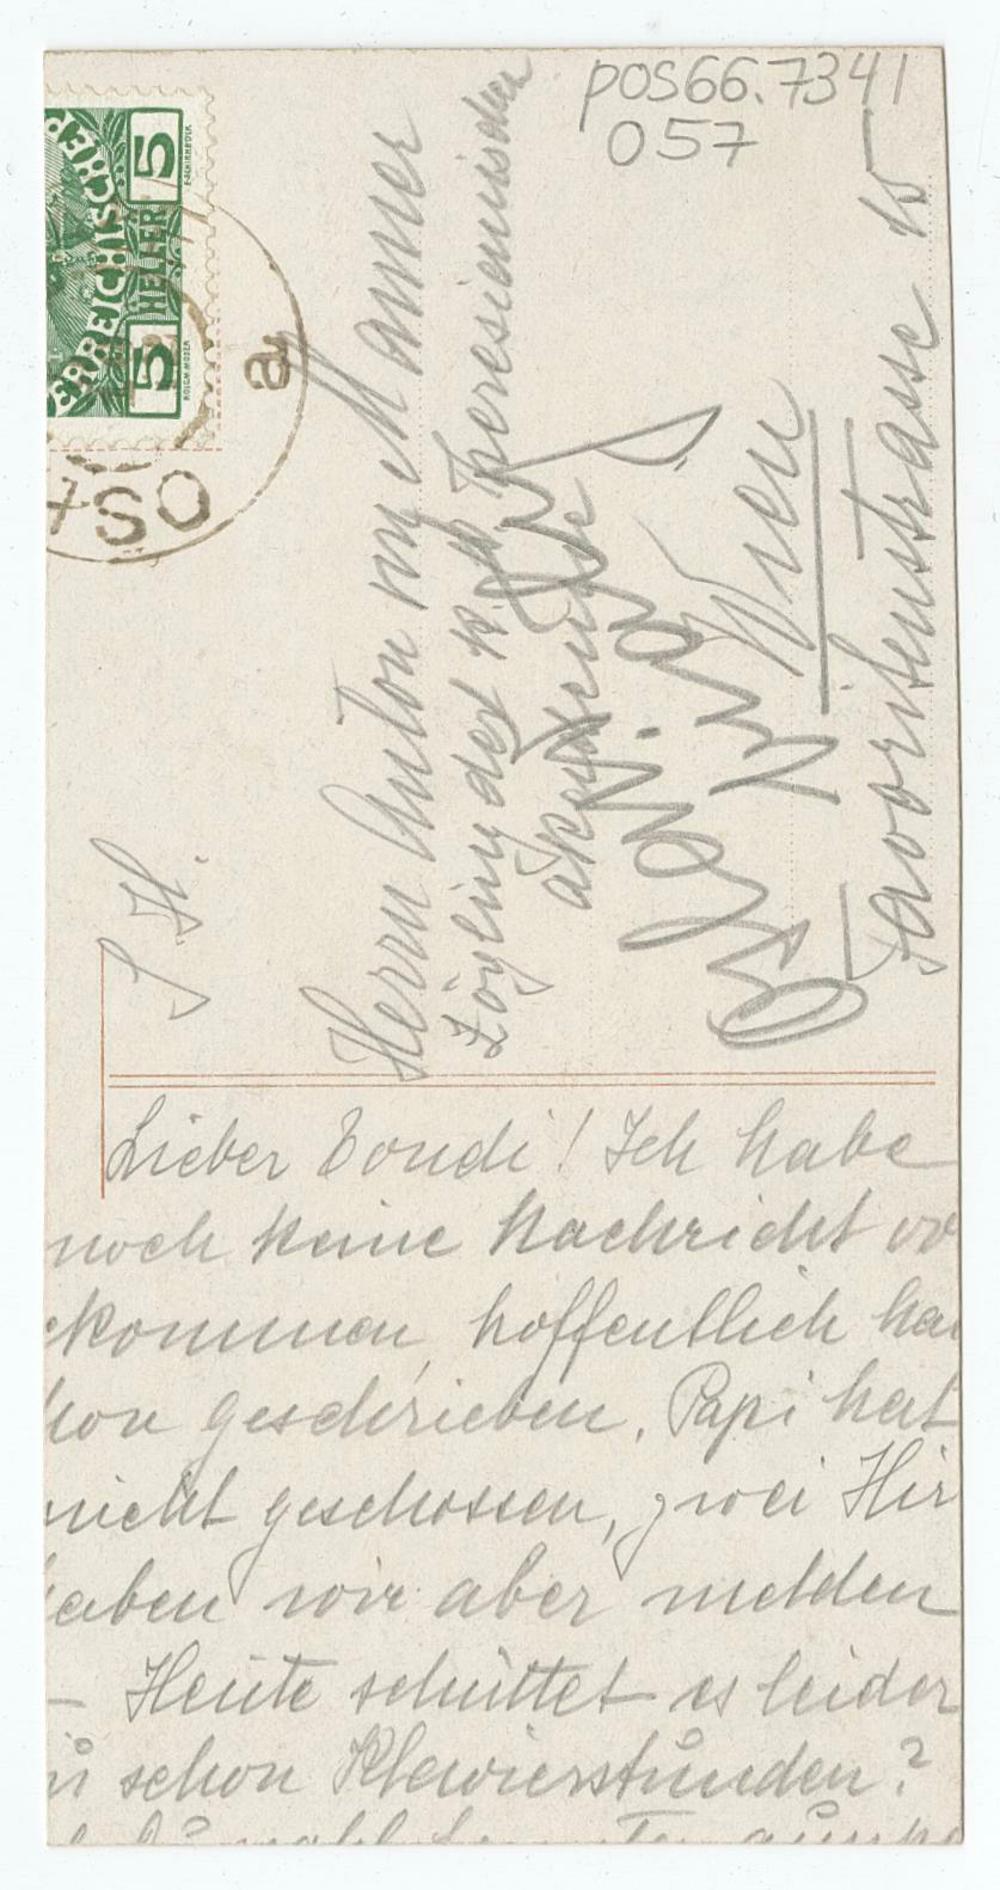 pos66.7341
057
5 HELLER 5
S. H.
Herrn Anton von Manner
Zögling der k. k. Theresienischen
akademie
Wien
Favoritenstrasse 15
Lieber Tondi! Ich habe
noch keine Nachricht vo
kommen, hoffentlich ha
hon geschrieben. Papi hat
nicht geschossen, zwei Hir
aben wir aber melden
– Heute schüttet es leider
ů schon Klavierstunden?